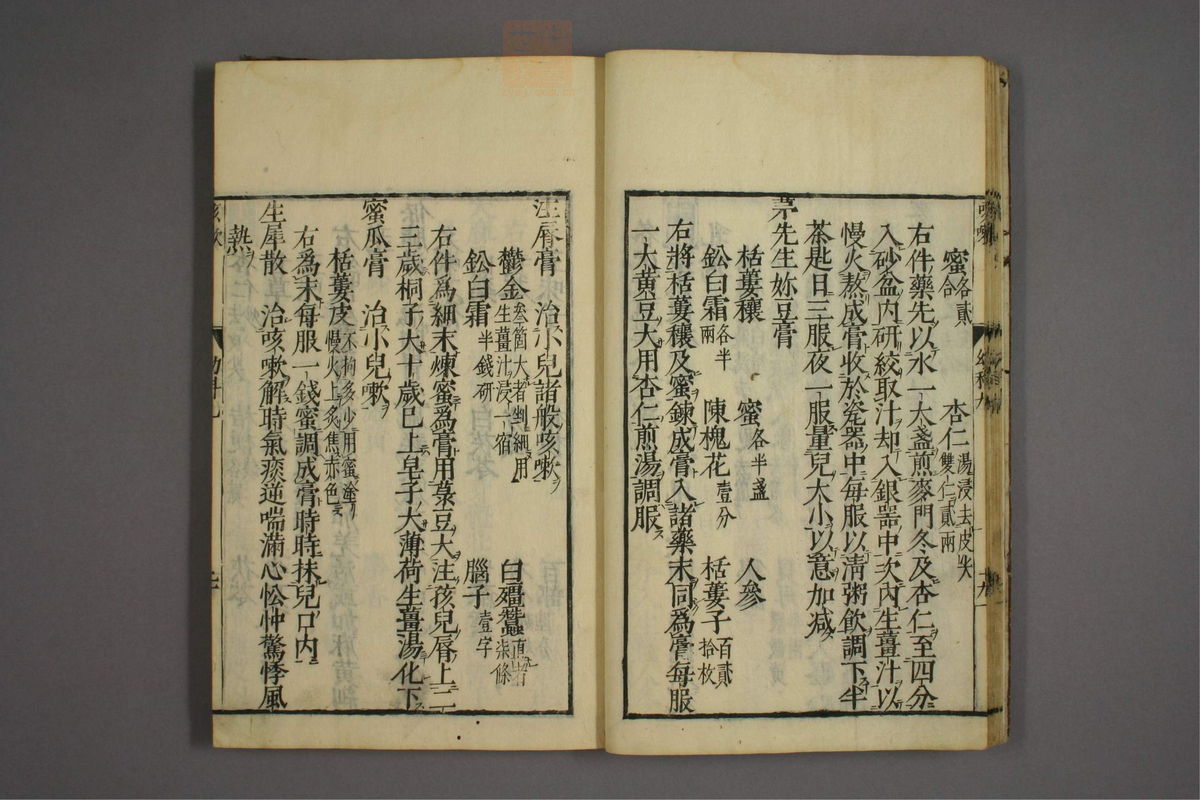 蜜各貳合　杏仁湯浸去皮尖雙仁貳兩
右件藥先以水一大盞煎麥門冬及杏仁至四分
入砂盆内研絞取汁却入銀器中次內生薑汁以
慢火熬成膏收於瓷器中每服以淸粥飲調下半
茶匙日三服夜一服量兒大小以意加減
茅先生妳豆膏
栝蔞穰　蜜各半盞　人參
鈆白霜各半兩　陳槐花壹分　栝蔞子百貳拾枚
右將栝蔞穰及蜜鍊成膏入諸藥末同爲膏每服
一大黄豆大用杏仁煎湯調服
注唇膏　治小兒諸般咳嗽
鬱金叁箇大者剉細用生薑汁浸一宿　白殭蠶直者柒條
鈆白霜半錢研　腦子壹字
右件爲細末煉蜜爲膏用菉豆大注孩兒唇上二
三歲桐子大十歲巳上皂子大薄荷生薑湯化下
蜜瓜膏　治小兒嗽
栝蔞皮不拘多少用蜜塗慢火上炙焦赤色
右爲末每服一錢蜜調成膏時時抹兒口内
生犀散　治咳嗽解時氣痰逆喘滿心忪忡驚悸風
熱